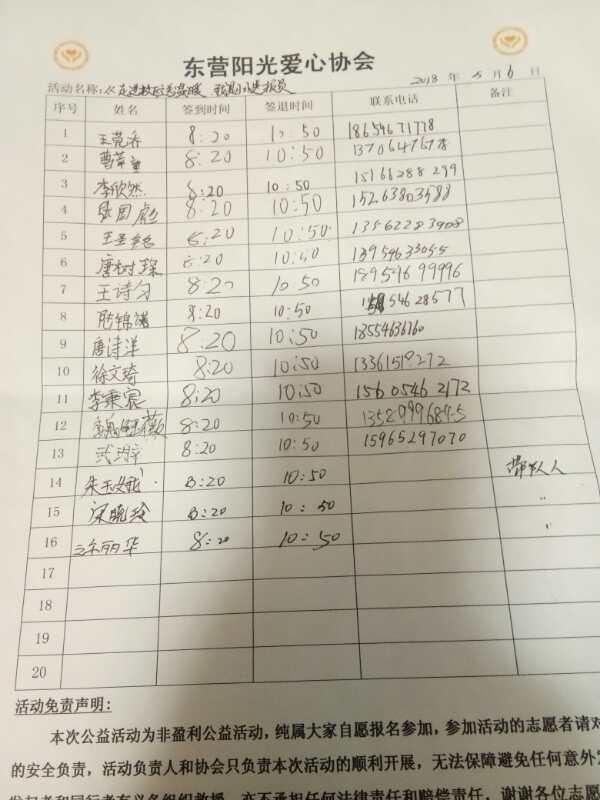 东营阳光爱心协会
活动名称: 2018 年 5 月 6 日
序号 姓名 签到时间 签退时间 联系电话 备注
1 8:20 10:50 18654671778
2 8:20 10:50
3 李欣然 8:20 10:50 15166288299
4 8:20 10:50 15263803588
5 8:20 10:50 13562283908
6 唐树琛 8:20 10:50 13954635055
7 王诗匀 8:20 10:50 18959699996
8 8:20 10:50 54628577
9 唐诗洋 8:20 10:50 18554636760
10 徐文琦 8:20 10:50
11 李秉宸 8:20 10:50 15605462172
12 8:20 10:50
13 8:20 10:50 15965297070
14 朱玉娥 8:20 10:50 带队人
15 宋晓玲 8:20 10:50 〃
16 徐丽华 8:20 10:50 〃
17
18
19
20
活动免责声明:
本次公益活动为非盈利公益活动，纯属大家自愿报名参加，参加活动的志愿者请对
的安全负责，活动负责人和协会只负责本次活动的顺利开展，无法保障避免任何意外
发起者和同行者有义务组织救援，亦不承担任何法律责任和赔偿责任，谢谢各位志愿